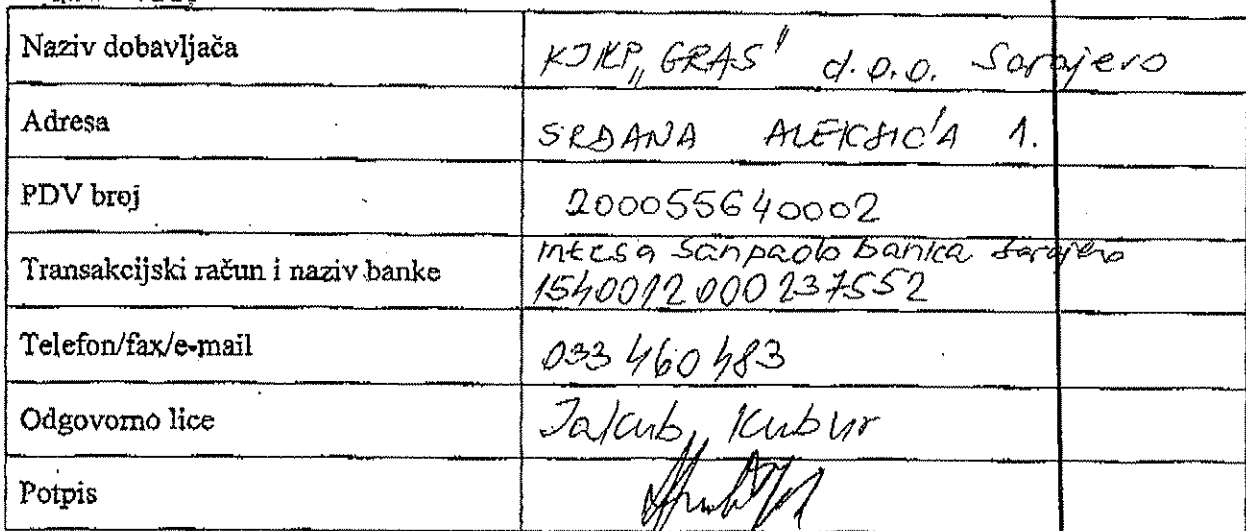 Naziv dobavljača
KJKP „GRAS" d.o.o. Sarajevo
Adresa
SRĐANA ALEKSIĆA 1.
PDV broj
200055640002
Transakcijski račun i naziv banke
Intesa Sanpaolo banka Sarajevo
1540012000237552
Telefon/fax/e-mail
033 460 483
Odgovorno lice
Jakub, Kubur
Potpis